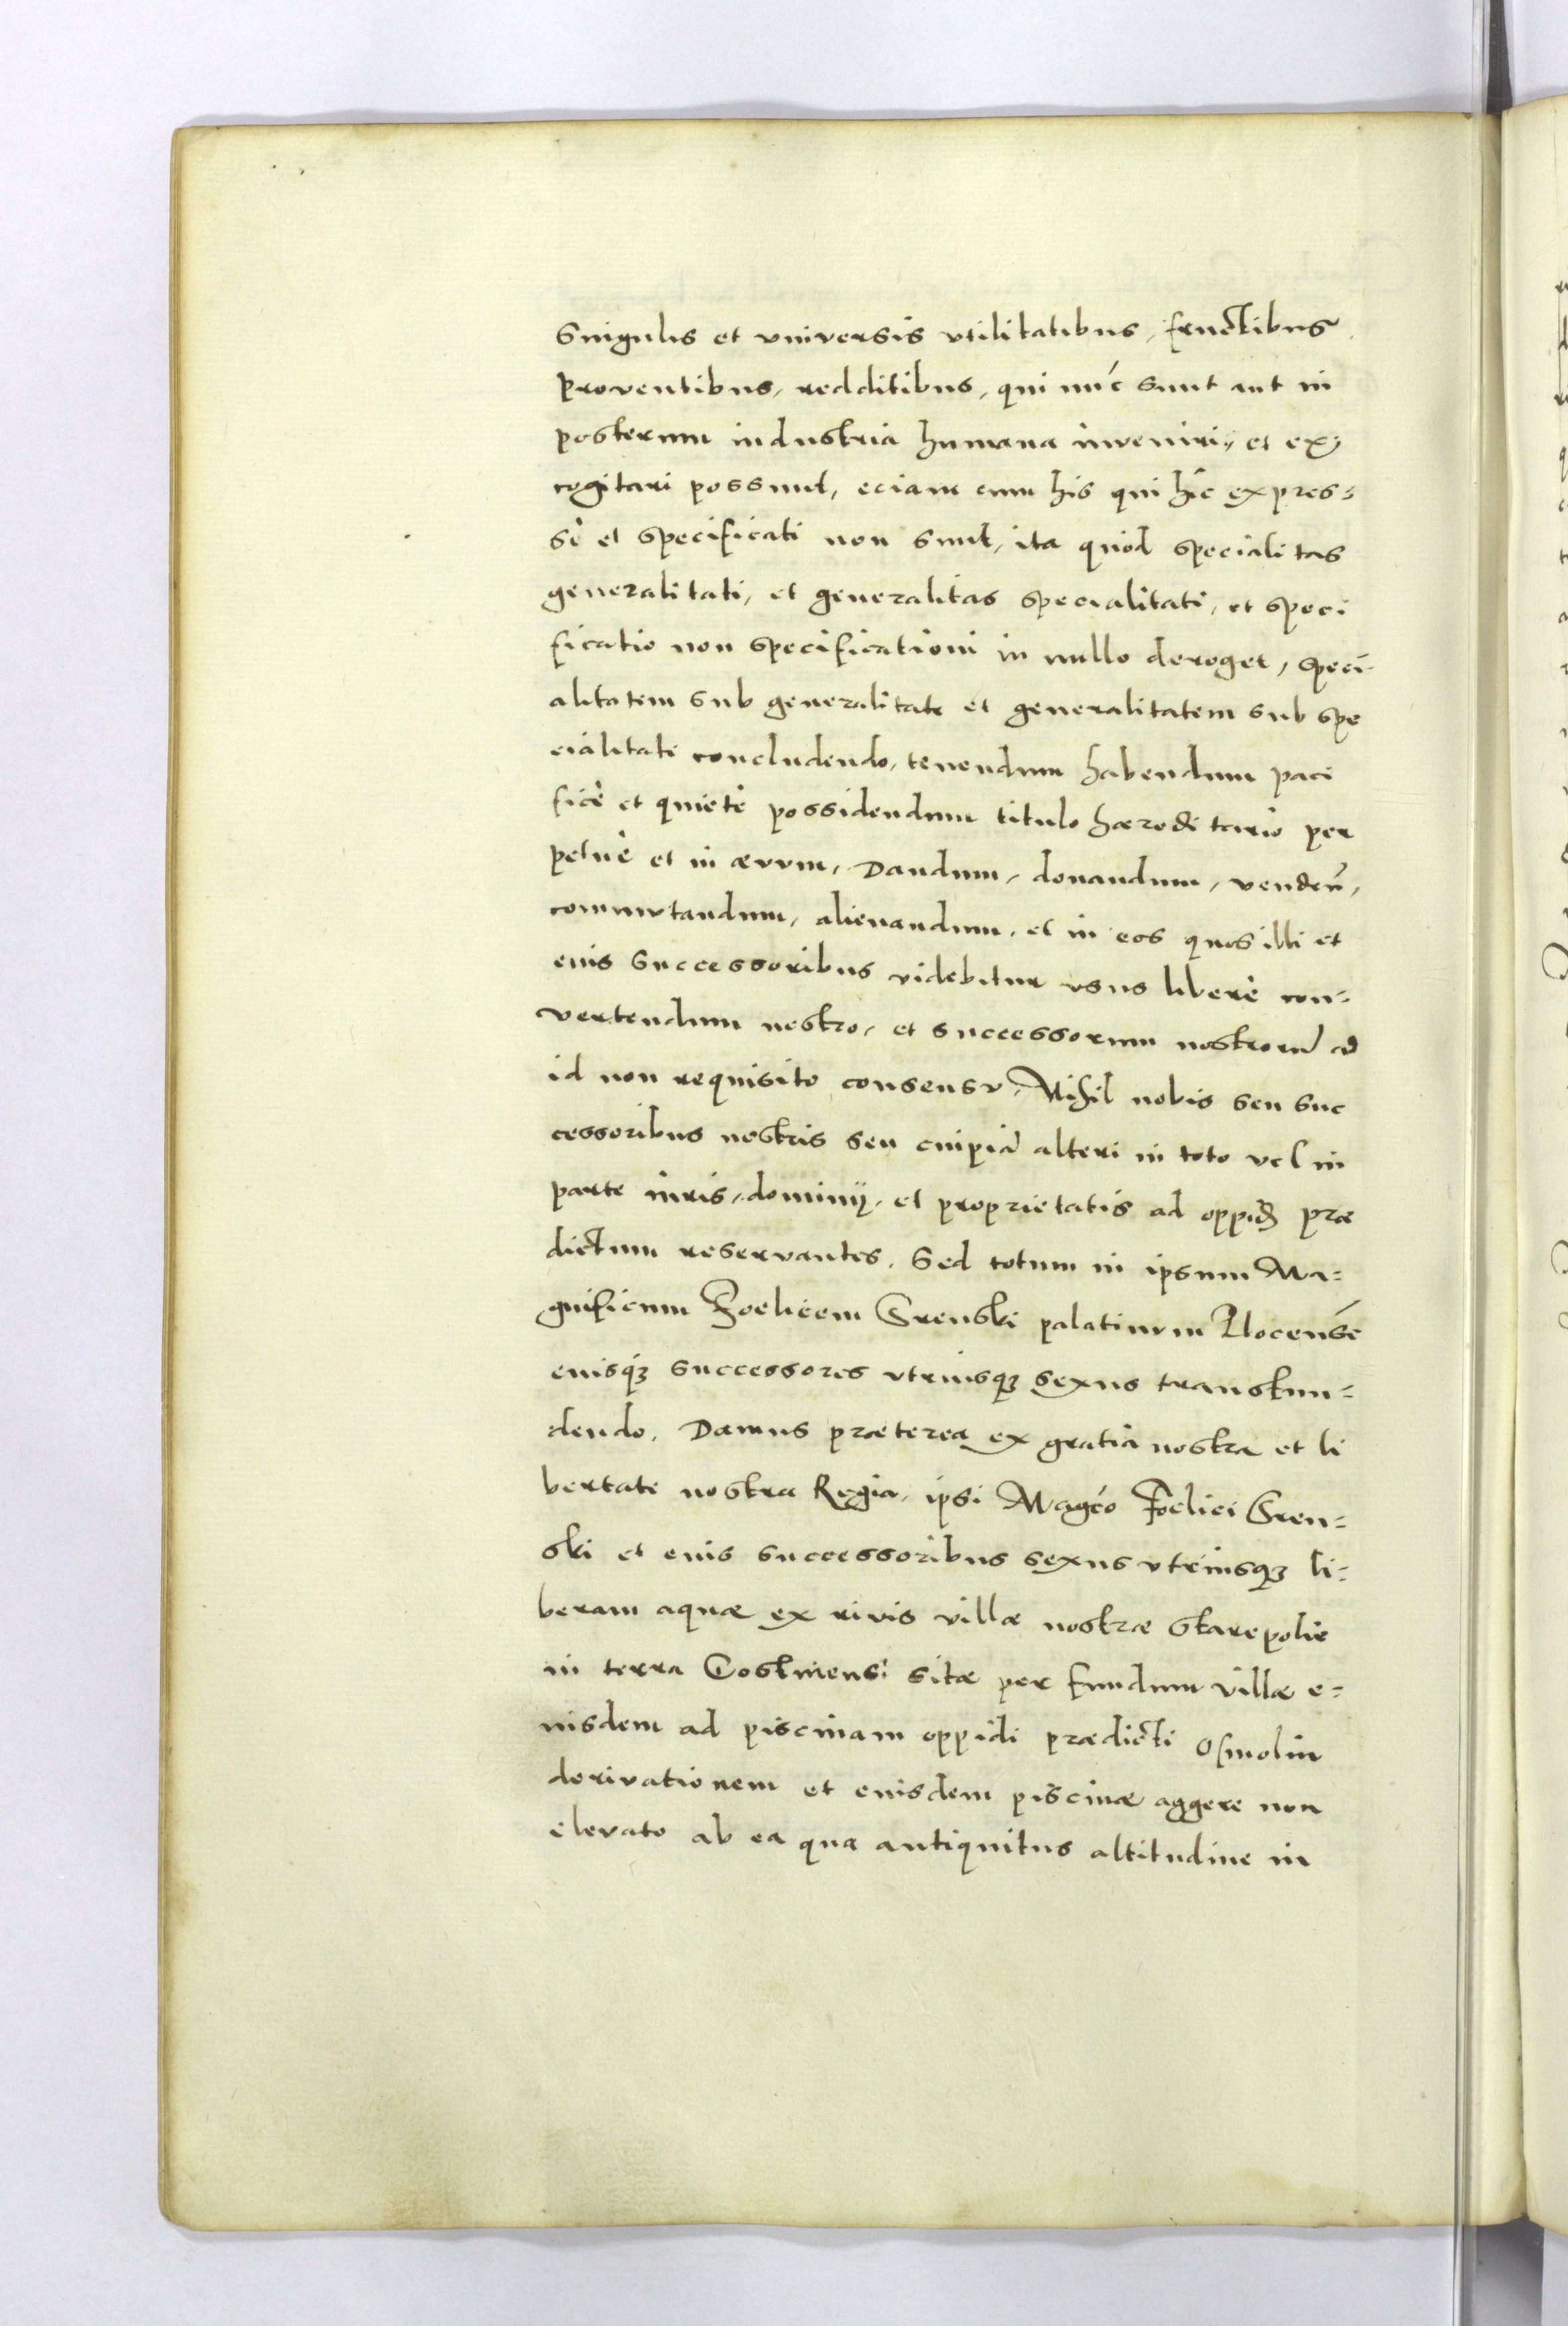 Singulis et vniversis vtilitatibus, fructibus
proventibus, redditibus, qui nu̅c sunt aut in
posterum industria humana inveniri, et ex-
cogitari possunt, eciam cum his qui hîc expres-
sè et specificati non sunt, ita quòd specialitas
generalitati, et generalitas specialitati, et speci
ficatio non specificationi in nullo deroget, speci-
alitatem sub generalitate et generalitatem sub spe
cialitate concludendo, tenendum habendum paci
ficè et quietè possidendum titulo hæreditario per
petuè et in ævvm, Dandum, donandum, venden̅,
commvtandum, alienandum, et in eos quos illi et
eius successoribus videbitur vsus liberè con-
vertendum nostro, et successorum nostroru̅ ad
id non requisito consensv, Nihil nobis seu suc
cessoribus nostris seu cuipia̅ alteri in toto vel in
parte iuris, dominij, et proprietatis ad oppid̅ præ
dictum reservantes, Sed totum in ipsum Ma-
gnificum Foelicem Srenski palatinvm Plocense̅
eiusq3 successores vtriusq3 sexus transfun-
dendo. Damus præterea ex gratia nostra et li
bertate nostra Regia, ipsi Mag̅co Foelici Sren-
ski et eius successoribus sexus vtriusq3 li-
beram aquæ ex rivis villæ nostræ Starepolie
in terra Gostinensi sitæ per fundum villæ e-
iusdem ad piscinam oppidi prædicti Osmolin
derivationem et eiusdem piscinæ aggere non
elevato ab ea qua antiquitus altitudine in